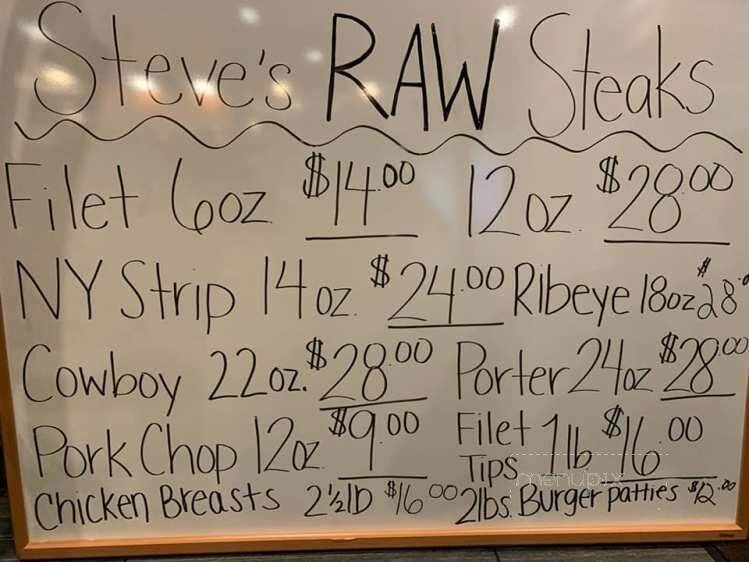 Steve's RAW Steaks
Filet 6oz. $14.00 12oz. $28.00
NY Strip 14oz. $24.00 Ribeye 18oz $28.0
Cowboy 22oz. $28.00 Porter 24oz $28.00
Pork Chop 12oz. $9.00 Filet Tips 1lb $16.00
Chicken Breasts 2½lb $16.00 2lbs. Burger patties $12.00
menupix